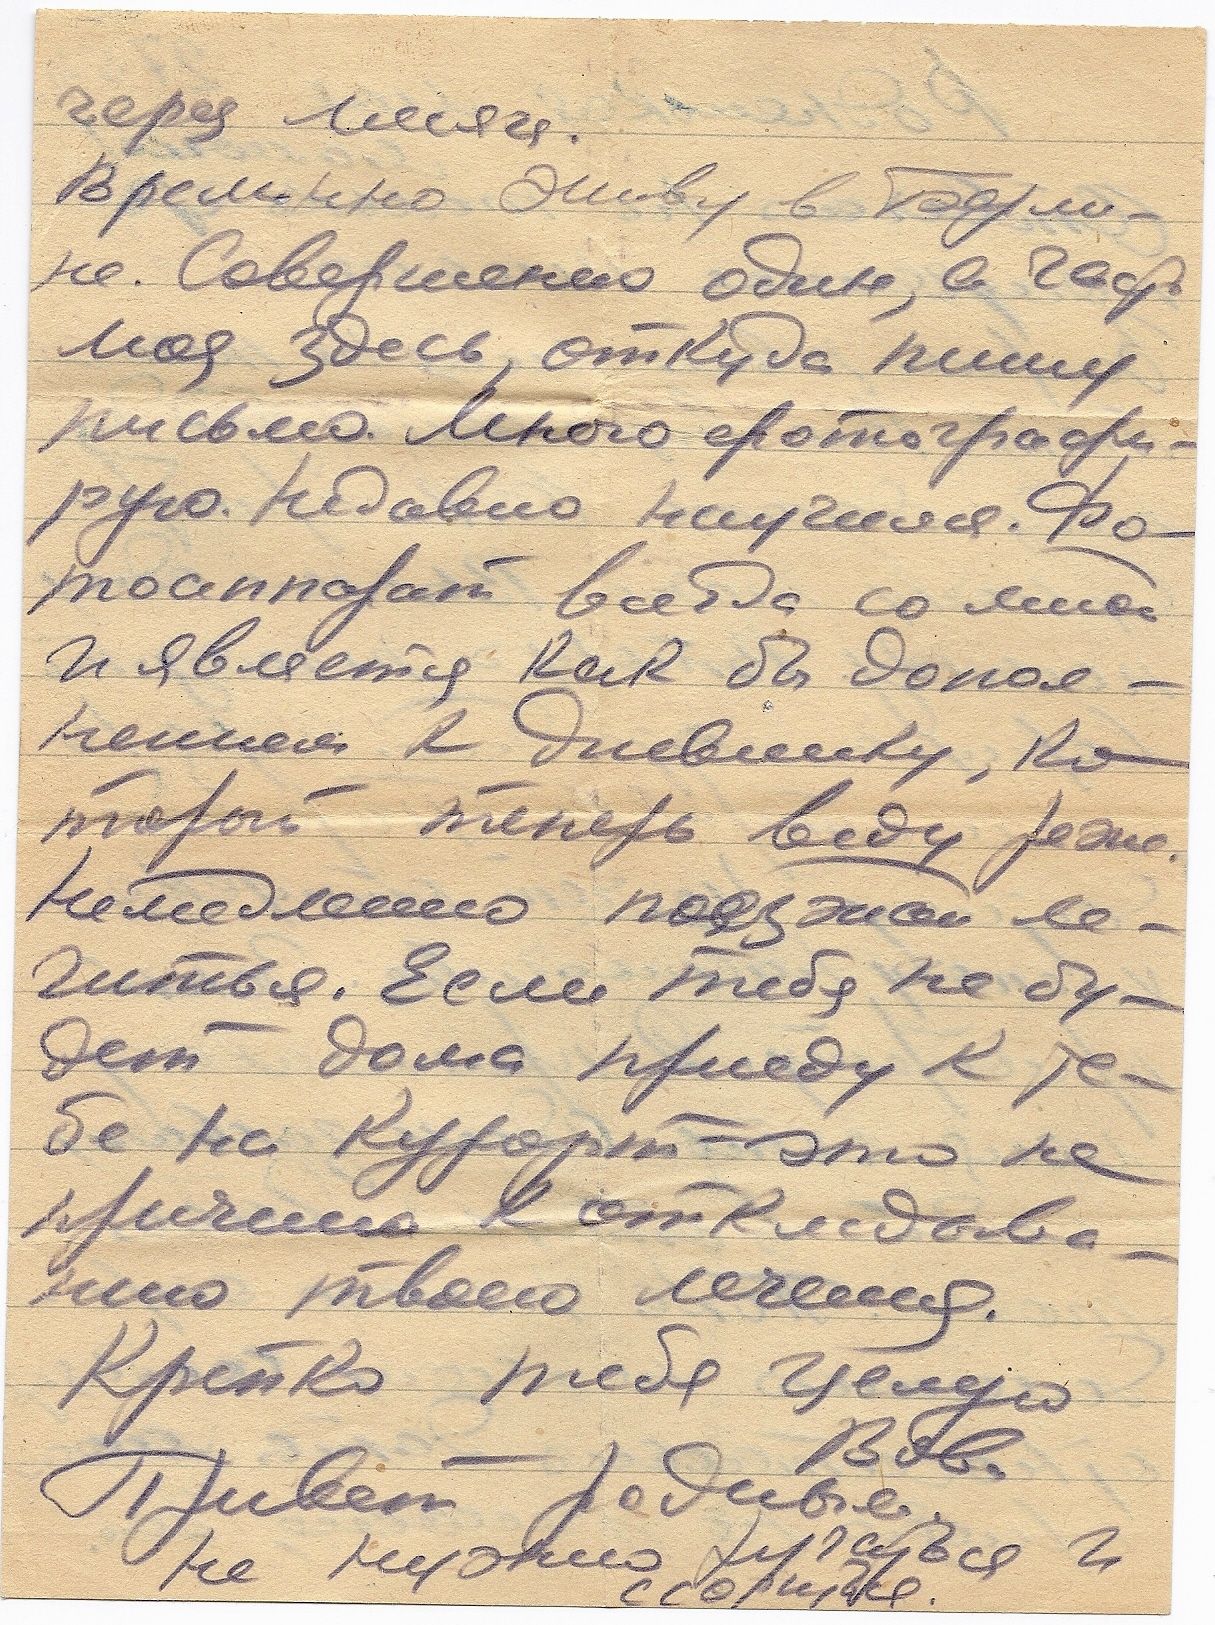 через месяц.
Временно живу в Берли-
не. Совершенно один, а часть
моя здесь, откуда пишу
письмо. Много фотографи-
рую. Недавно научился. Фо-
тоаппарат всегда со мной
и является как бы допол-
нением к дневнику, ко-
торый теперь веду реже.
Немедленно поезжай ле-
читься. Если тебя не бу-
дет дома приеду к те-
бе на курорт - это не
причина к откладыва-
нию твоего лечения.
Крепко тебя целую
Вова
Привет родным.
Не нужно ругаться и
ссориться.